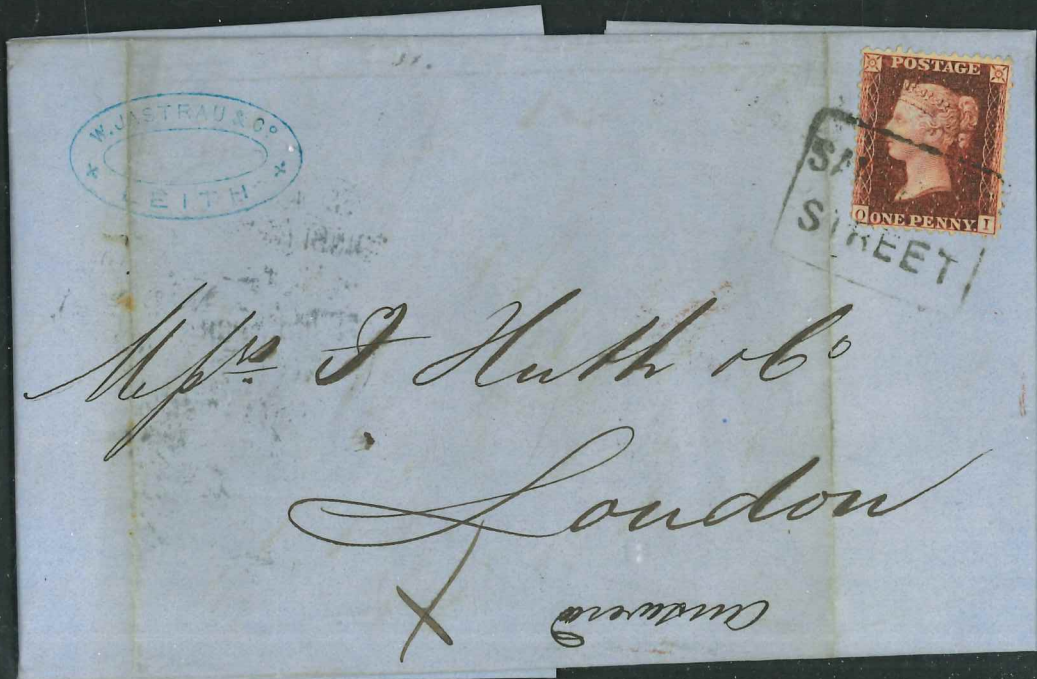 W. JASTRAU & Co
LEITH
POSTAGE
O ONE PENNY. I
STREET
Messrs F Huth & Co
London
answered